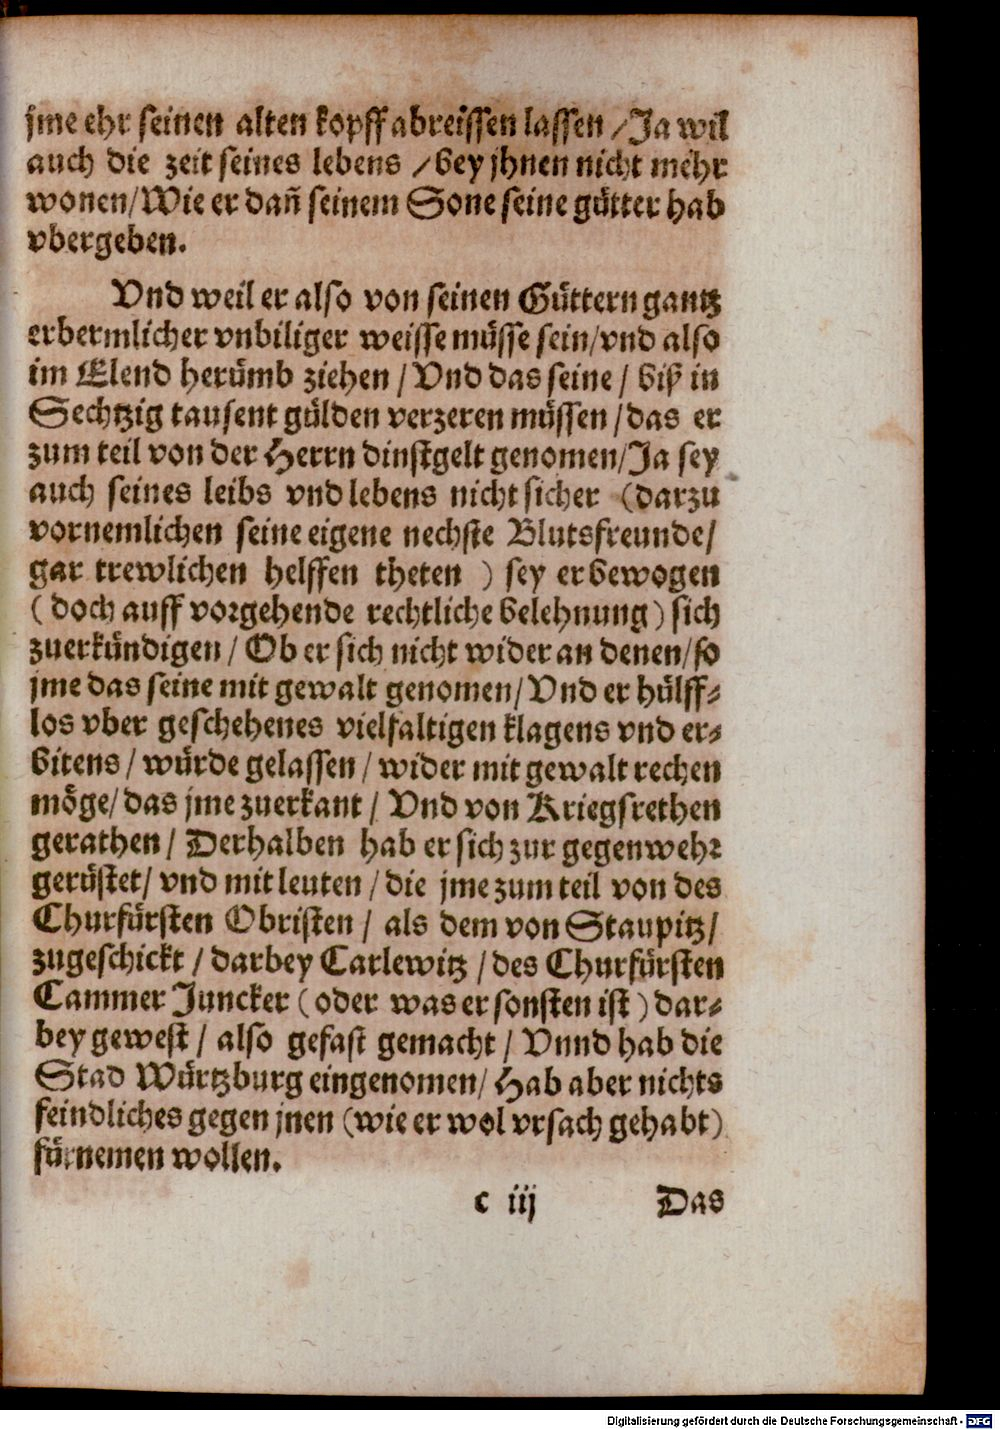 jme ehr seinen alten kopff abreissen lassen / Ja wil
auch die zeit seines lebens / bey jhnen nicht mehr
wonen / Wie er dañ seinem Sone seine gütter hab
vbergeben.
Vnd weil er also von seinen Güttern gantz
erbermlicher vnbiliger weisse müsse sein / vnd also
im Elend herümb ziehen / Vnd das seine / biß in
Sechtzig tausent gülden verzeren müssen / das er
zum teil von der Herrn dinstgelt genomen / Ja sey
auch seines leibs vnd lebens nicht sicher (darzu
vornemlichen seine eigene nechste Blutsfreunde /
gar trewlichen helffen theten ) sey er bewogen
( doch auff vorgehende rechtliche belehnung ) sich
zuerkündigen / Ob er sich nicht wider an denen / so
jme das seine mit gewalt genomen / Vnd er hülff⸗
los vber geschehenes vielfaltigen klagens vnd er⸗
bitens / würde gelassen / wider mit gewalt rechen
möge / das jme zuerkant / Vnd von Kriegsrethen
gerathen / Derhalben hab er sich zur gegenwehr
gerüstet / vnd mit leuten / die jme zum teil von des
Churfürsten Obristen / als dem von Staupitz /
zugeschickt / darbey Carlewitz / des Churfürsten
Cammer Juncker ( oder was er sonsten ist ) dar⸗
bey gewest / also gefast gemacht / Vnnd hab die
Stad Würtzburg eingenomen / Hab aber nichts
feindliches gegen jnen (wie er wol vrsach gehabt)
fürnemen wollen.
c iij Das
Digitalisierung gefördert durch die Deutsche Forschungsgemeinschaft - DFG